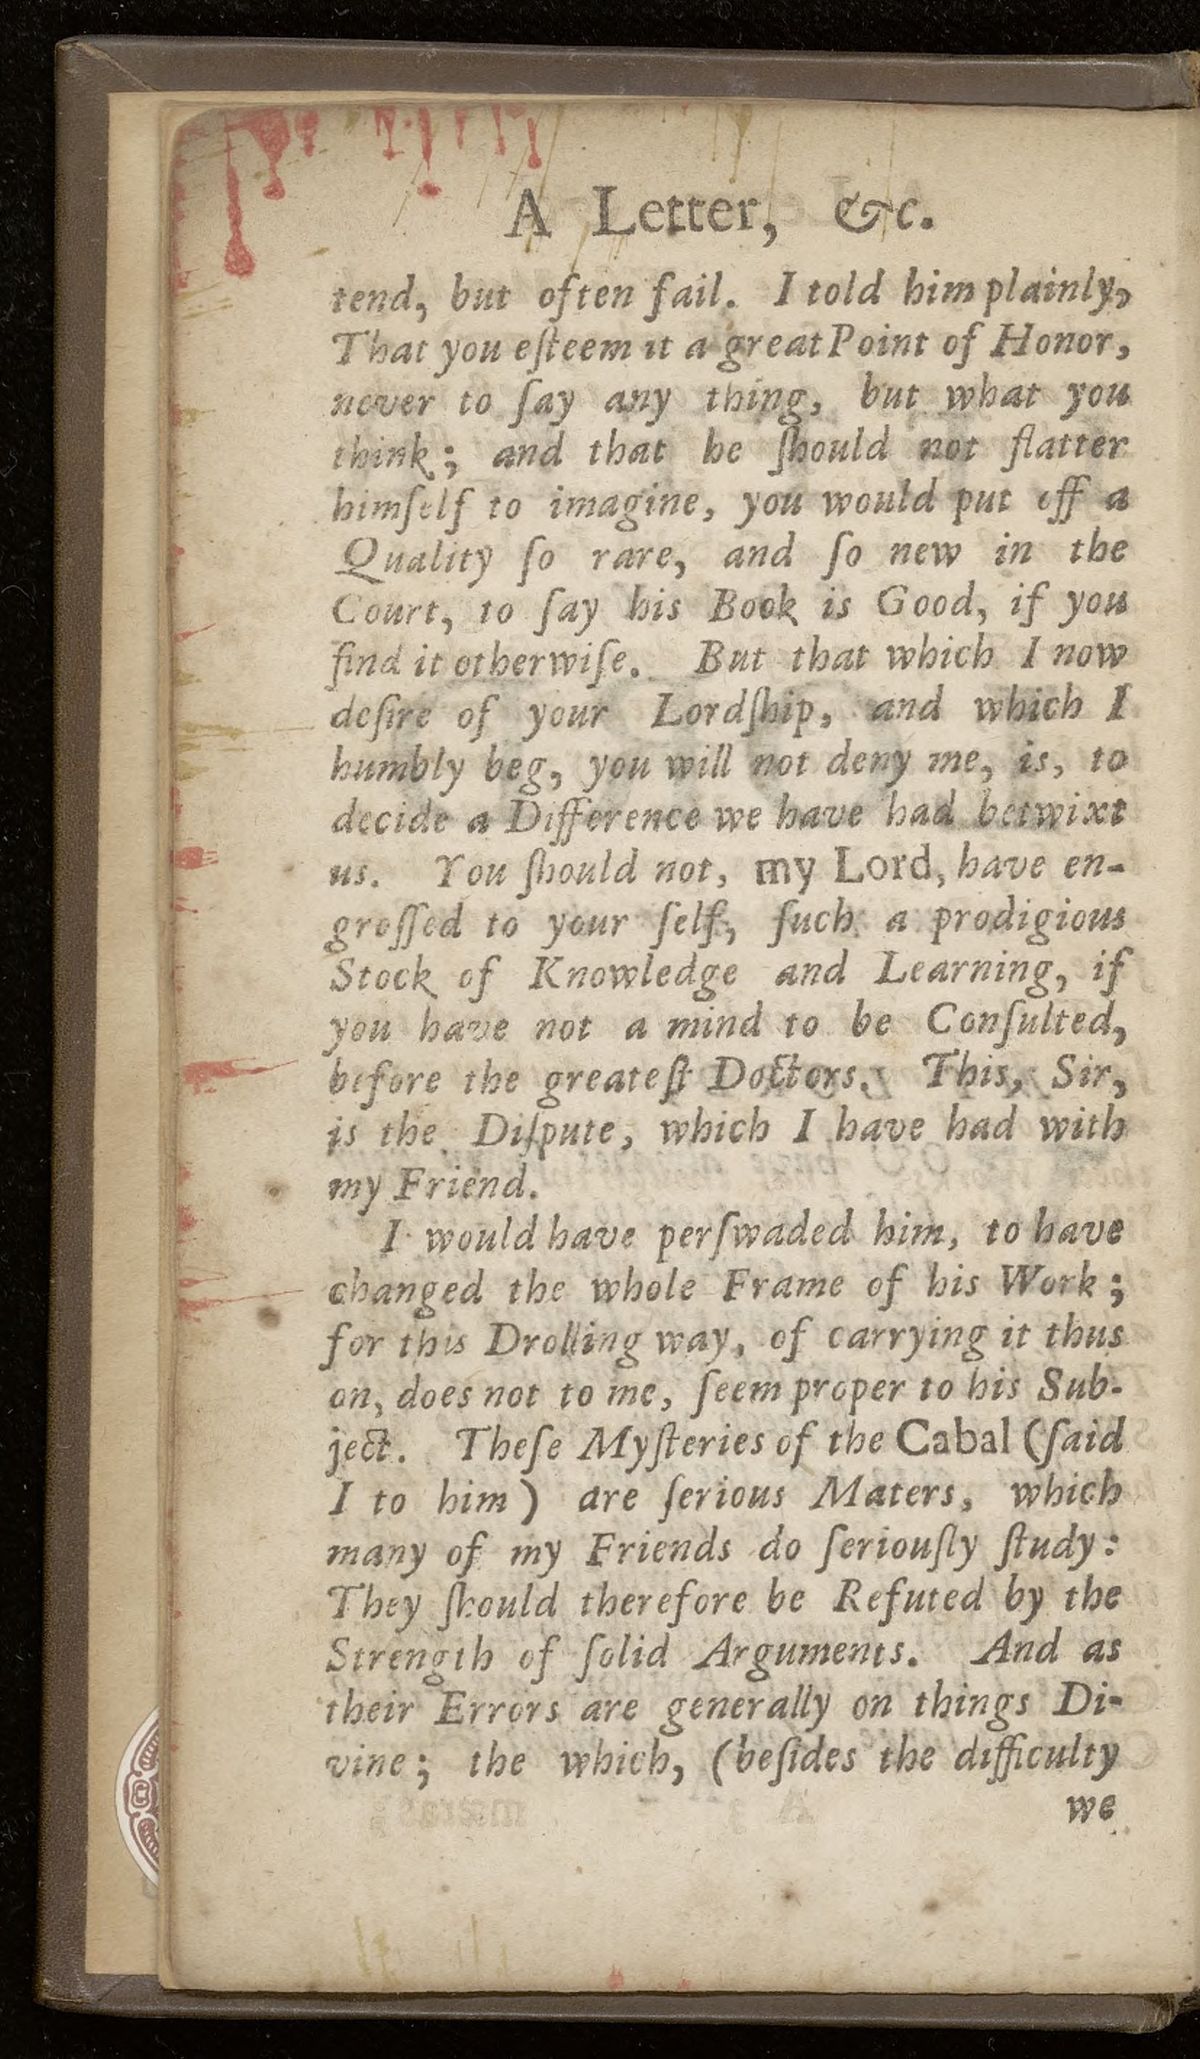 A Letter, &c.
tend, but often fail. I told him plainly,
That you eſteem it a great Point of Honor,
never to ſay any thing, but what you
think; and that he ſhould not flatter
himſelf to imagine, you would put off a
Quality ſo rare, and ſo new in the
Court, to ſay his Book is Good, if you
find it otherwiſe. But that which I now
deſire of your Lordſhip, and which I
humbly beg, you will not deny me, is, to
decide a Difference we have had betwixt
us. You ſhould not, my Lord, have en-
groſſed to your ſelf, ſuch a prodigious
Stock of Knowledge and Learning, if
you have not a mind to be Conſulted,
before the greateſt Doctors. This, Sir,
is the Diſpute, which I have had with
my Friend.
I would have perſwaded him, to have
changed the whole Frame of his Work;
for this Drolling way, of carrying it thus
on, does not to me, ſeem proper to his Sub-
ject. Theſe Myſteries of the Cabal (ſaid
I to him) are ſerious Maters, which
many of my Friends do ſeriouſly ſtudy:
They ſhould therefore be Refuted by the
Strength of ſolid Arguments. And as
their Errors are generally on things Di-
vine; the which, (beſides the difficulty
we